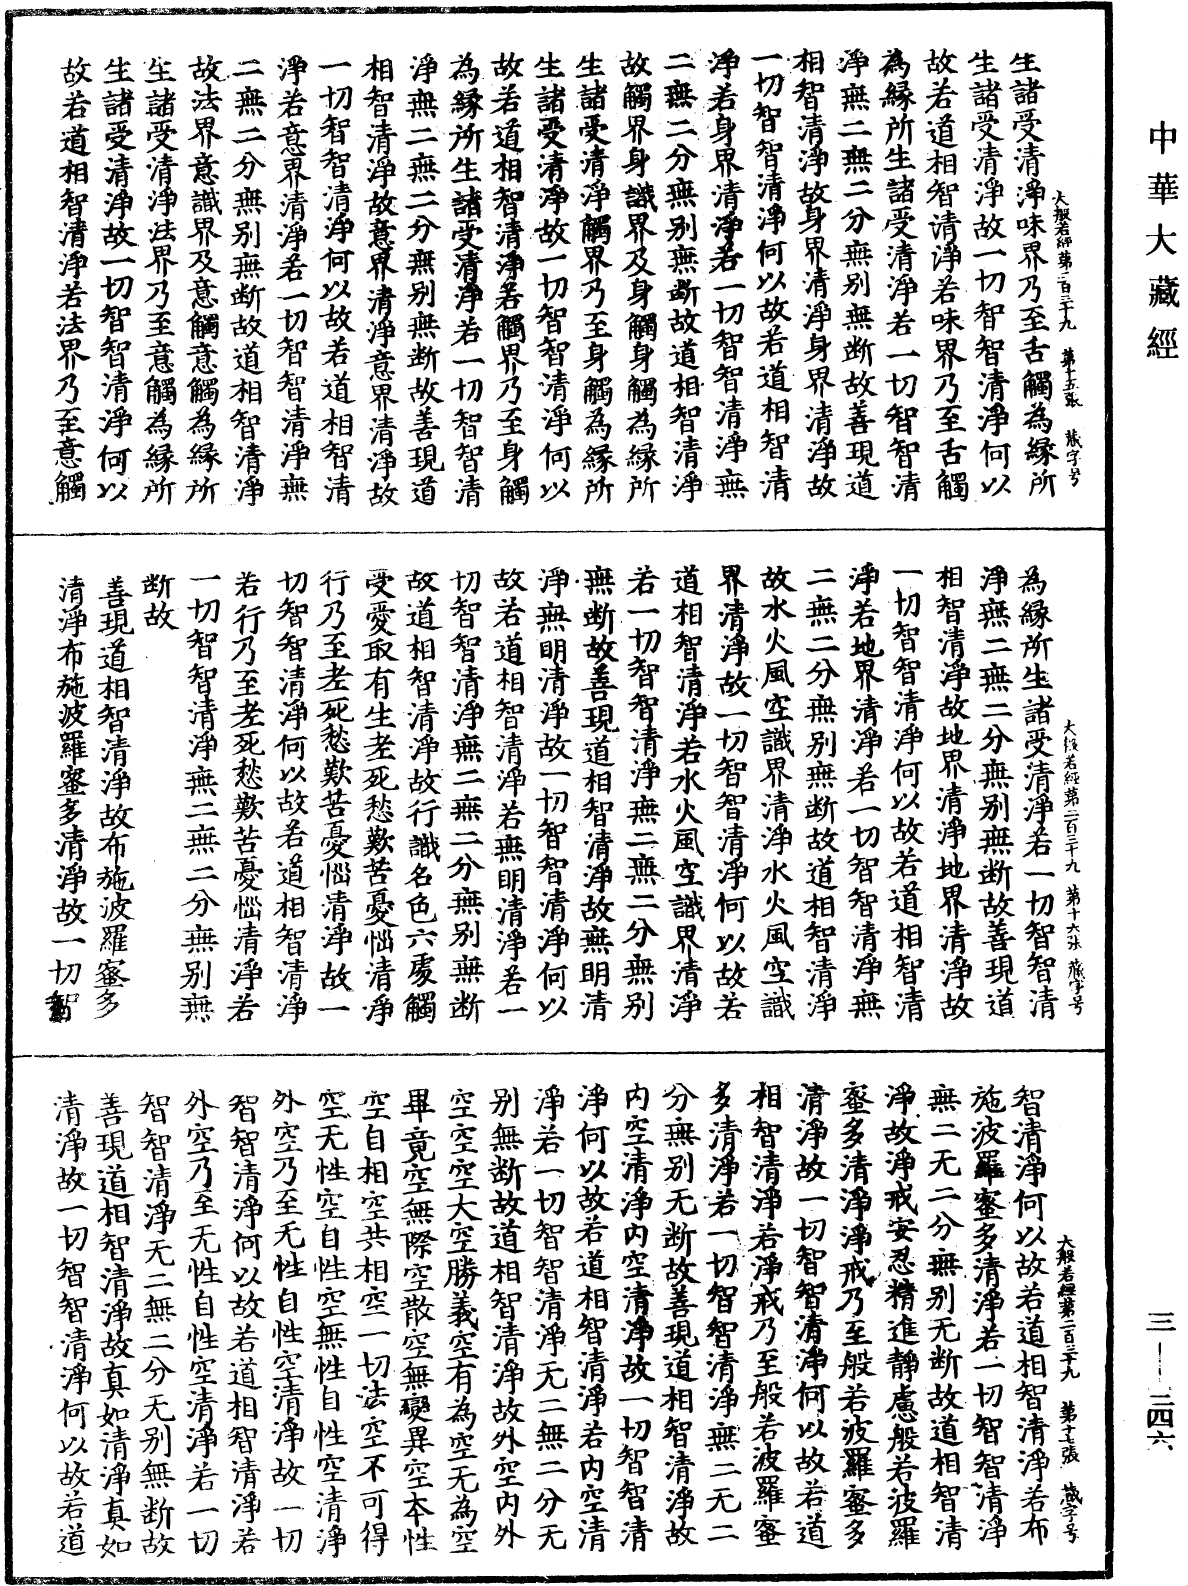 中華大藏經
生諸受清淨味界乃至舌觸為緣所
大般若經第二百三十九　第十五張　藏字号
生諸受清淨故一切智智清淨何以
故若道相智清淨若味界乃至舌觸
為緣所生諸受清淨若一切智智清
淨無二無二分無別無斷故善現道
相智清淨故身界清淨身界清淨故
一切智智清淨何以故若道相智清
淨若身界清淨若一切智智清淨無
二無二分無別無斷故道相智清淨
故觸界身識界及身觸身觸為緣所
生諸受清淨觸界乃至身觸為緣所
生諸受清淨故一切智智清淨何以
故若道相智清淨若觸界乃至身觸
為緣所生諸受清淨若一切智智清
淨無二無二分無別無斷故善現道
相智清淨故意界清淨意界清淨故
一切智智清淨何以故若道相智清
淨若意界清淨若一切智智清淨無
二無二分無別無斷故道相智清淨
故法界意識界及意觸意觸為緣所
生諸受清淨法界乃至意觸為緣所
生諸受清淨故一切智智清淨何以
故若道相智清淨若法界乃至意觸
為緣所生諸受清淨若一切智智清
大般若經第二百三十九　第十六張　藏字号
淨無二無二分無別無斷故善現道
相智清淨故地界清淨地界清淨故
一切智智清淨何以故若道相智清
淨若地界清淨若一切智智清淨無
二無二分無別無斷故道相智清淨
故水火風空識界清淨水火風空識
界清淨故一切智智清淨何以故若
道相智清淨若水火風空識界清淨
若一切智智清淨無二無二分無別
無斷故善現道相智清淨故無明清
淨無明清淨故一切智智清淨何以
故若道相智清淨若無明清淨若一
切智智清淨無二無二分無別無斷
故道相智清淨故行識名色六處觸
受愛取有生老死愁歎苦憂惱清淨
行乃至老死愁歎苦憂惱清淨故一
切智智清淨何以故若道相智清淨
若行乃至老死愁歎苦憂惱清淨若
一切智智清淨無二無二分無別無
斷故
善現道相智清淨故布施波羅蜜多
清淨布施波羅蜜多清淨故一切智
智清淨何以故若道相智清淨若布
大般若經第二百三十九　第十七張　藏字号
施波羅蜜多清淨若一切智智清淨
無二无二分無別无斷故道相智清
淨故淨戒安忍精進靜慮般若波羅
蜜多清淨淨戒乃至般若波羅蜜多
清淨故一切智智清淨何以故若道
相智清淨若淨戒乃至般若波羅蜜
多清淨若一切智智清淨無二无二
分無別无斷故善現道相智清淨故
内空清淨内空清淨故一切智智清
淨何以故若道相智清淨若内空清
淨若一切智智清淨无二無二分无
別無斷故道相智清淨故外空内外
空空空大空勝義空有為空无為空
畢竟空無際空散空無變異空本性
空自相空共相空一切法空不可得
空无性空自性空無性自性空清淨
外空乃至无性自性空清淨故一切
智智清淨何以故若道相智清淨若
外空乃至无性自性空清淨若一切
智智清淨无二無二分无別無斷故
善現道相智清淨故真如清淨真如
清淨故一切智智清淨何以故若道
三—三四六